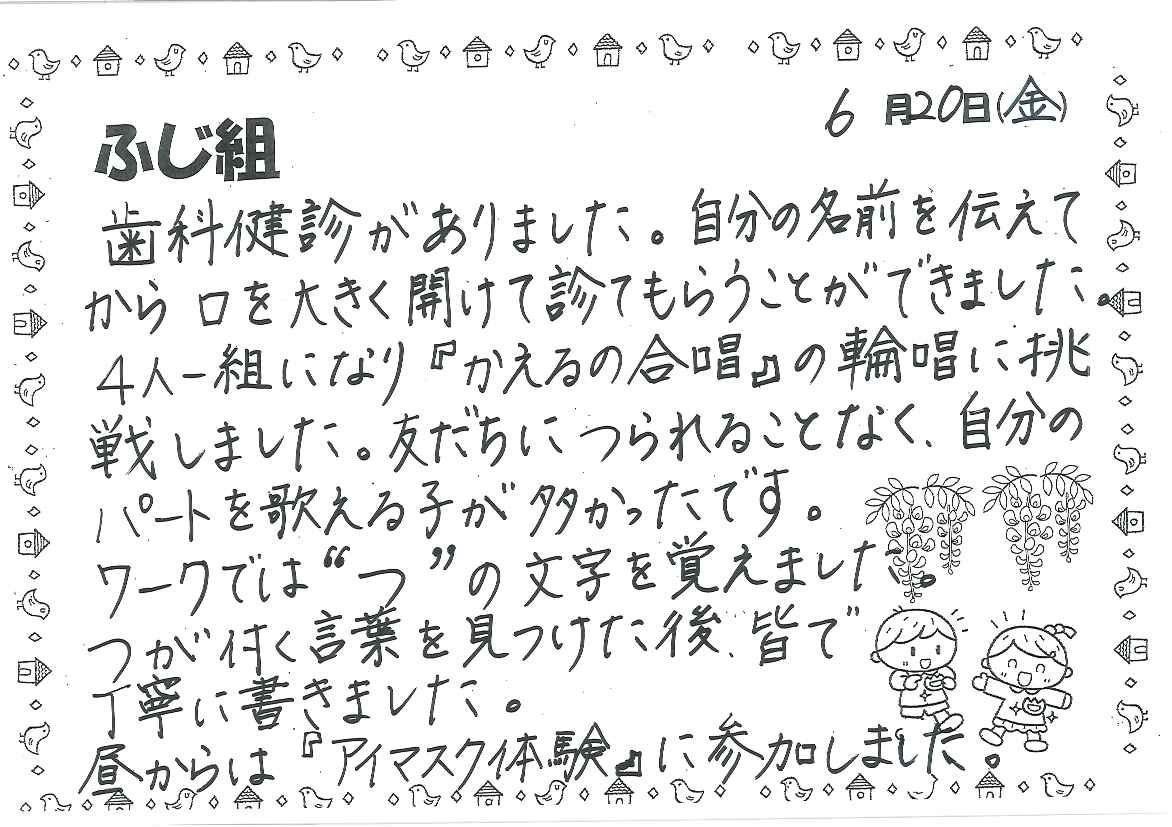 6月20日(金)
ふじ組
歯科健診がありました。自分の名前を伝えて
から口を大きく開けて診てもらうことができました。
4人一組になり『かえるの合唱』の輪唱に挑
戦しました。友だちにつられることなく、自分の
パートを歌える子が多かったです。
ワークでは“つ”の文字を覚えました。
つが付く言葉を見つけた後、皆で
丁寧に書きました。
昼からは『アイマスク体験』に参加しました。